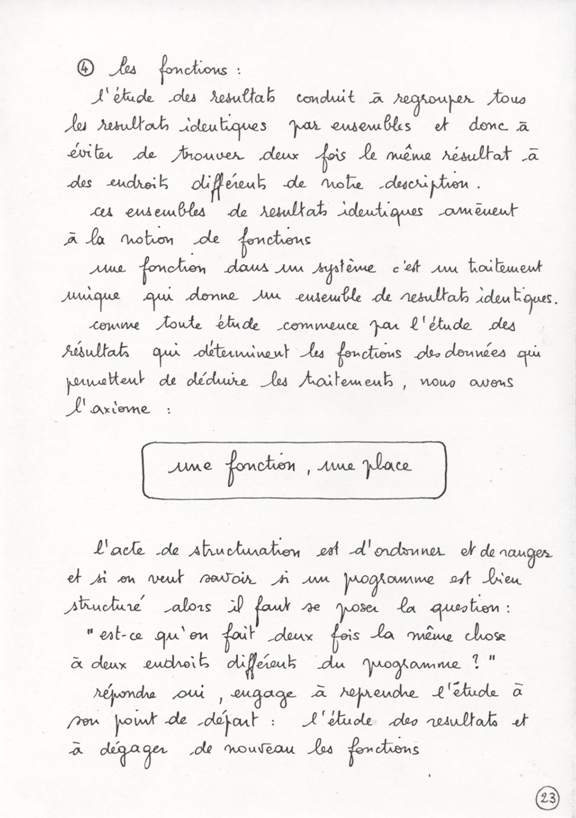 ④ les fonctions :
l'étude des resultats conduit à regrouper tous
les resultats identiques par ensembles et donc à
éviter de trouver deux fois le même résultat à
des endroits différents de notre description.
ces ensembles de resultats identiques amènent
à la notion de fonctions
une fonction dans un système c'est un traitement
unique qui donne un ensemble de resultats identiques.
comme toute étude commence par l'étude des
résultats qui déterminent les fonctions des données qui
permettent de déduire les traitements, nous avons
l'axiome :
une fonction, une place
l'acte de structuration est d'ordonner et de ranger
et si on veut savoir si un programme est bien
structuré alors il faut se poser la question :
"est-ce qu'on fait deux fois la même chose
à deux endroits différents du programme ?"
répondre oui, engage à reprendre l'étude à
son point de départ : l'étude des resultats et
à dégager de nouveau les fonctions
23